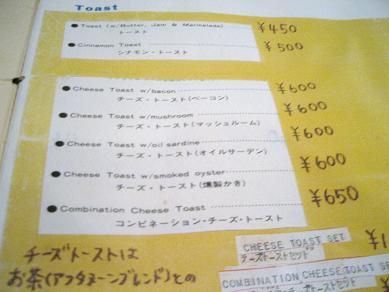 Toast
Toast (w/Butter, Jam & Marmalade) ¥450
トースト
Cinnamon Toast ¥500
シナモン・トースト
Cheese Toast w/bacon ¥600
チーズ・トースト(ベーコン)
Cheese Toast w/mushroom ¥600
チーズ・トースト(マッシュルーム)
Cheese Toast w/oil sardine ¥600
チーズ・トースト(オイルサーデン)
Cheese Toast w/smoked oyster ¥600
チーズ・トースト(燻製かき)
Combination Cheese Toast ¥650
コンビネーション・チーズ・トースト
チーズトーストは
お茶(アフタヌーンブレンド)との
CHEESE TOAST SET ¥1
チーズトーストセット
COMBINATION CHEESE TOAST SET